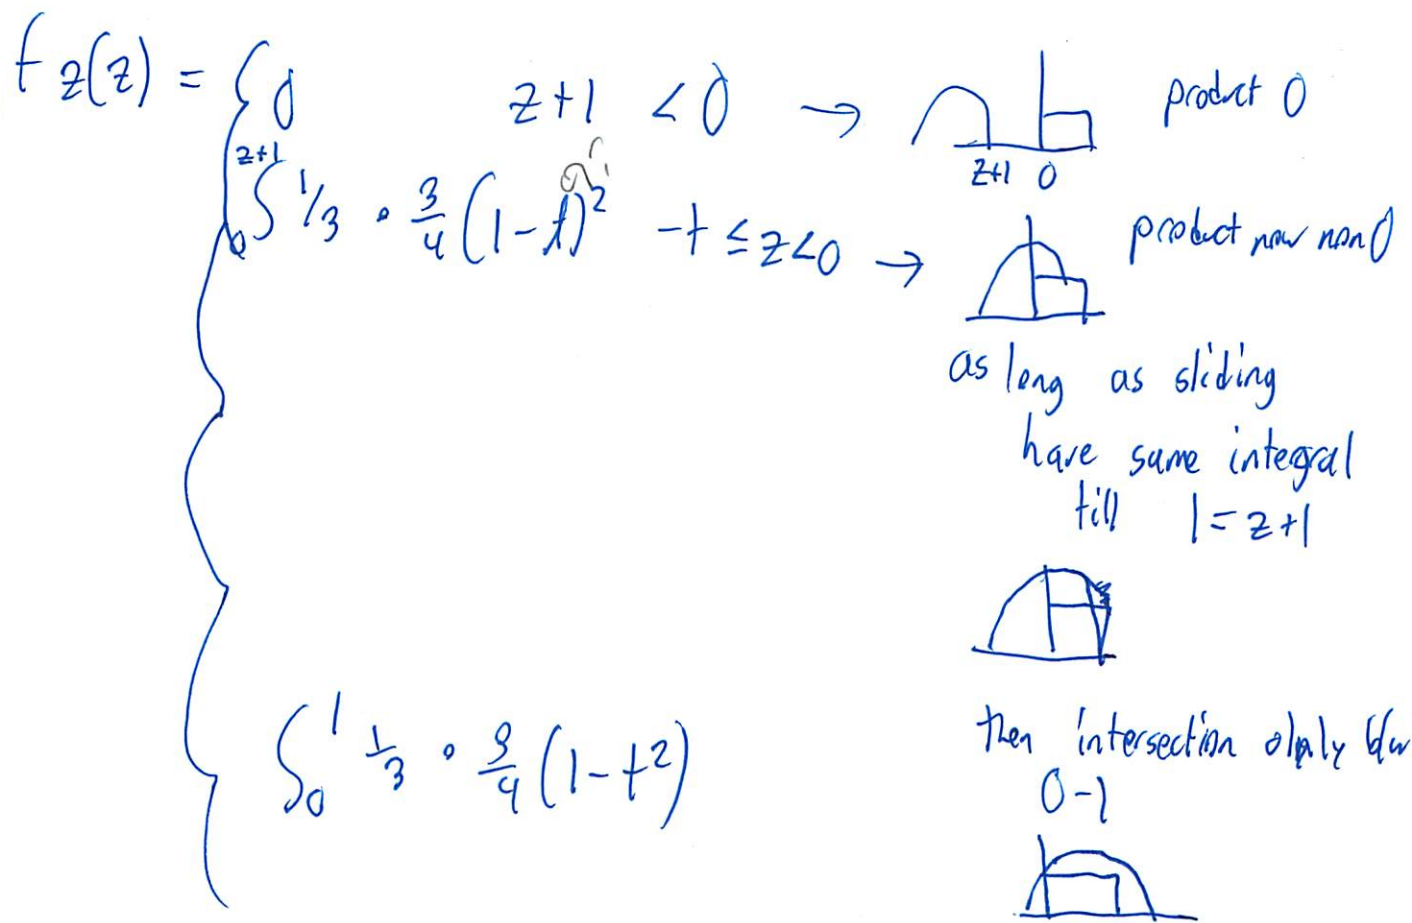 f z(z) = { 0    z+1 < 0 → product 0
z+1 0
∫ 0 z+1 1/3 · 3/4 (1-t)² -1 ≤ z<0 → product now non 0
as long as sliding
have same integral
till 1 = z+1
then intersection only b/w
0-1
∫ 0 1 1/3 · 3/4 (1-t²)